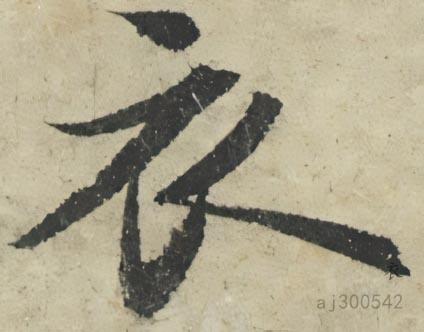 衣
aj300542